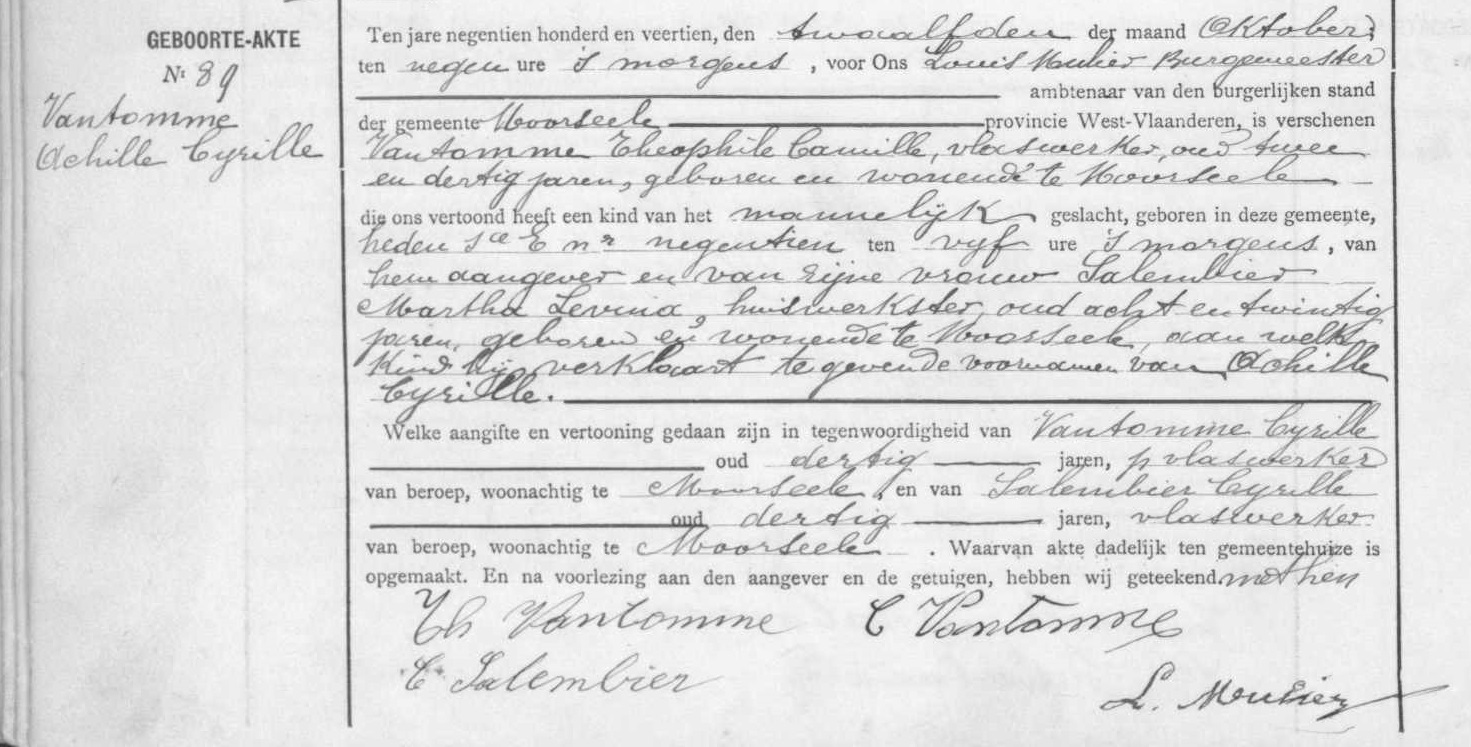 GEBOORTE-AKTE
Nr 89
Vantomme
Achille Cyrille
Ten jare negentien honderd en veertien, den twaalfden der maand Oktober,
ten negen ure 's morgens, voor Ons Louis Moulier Burgemeester
ambtenaar van den burgerlijken stand
der gemeente Moorseele provincie West-Vlaanderen, is verschenen
Vantomme Theophile Camille, vlaswerker, oud twee
en dertig jaren, geboren en wonende te Moorseele
die ons vertoond heeft een kind van het mannelijk geslacht, geboren in deze gemeente,
heden sce E nr negentien ten vyf ure 's morgens, van
hem aangever en van zijne vrouw Salembier
Martha Levina, huiswerkster, oud acht en twintig
jaren, geboren en wonende te Moorseele, aan welk
Kind hij verklaart te geven de voornamen van Achille
Cyrille.
Welke aangifte en vertooning gedaan zijn in tegenwoordigheid van Vantomme Cyrille
oud dertig jaren, vlaswerker
van beroep, woonachtig te Moorseele, en van Salembier Cyrille
oud dertig jaren, vlaswerker
van beroep, woonachtig te Moorseele. Waarvan akte dadelijk ten gemeentehuize is
opgemaakt. En na voorlezing aan den aangever en de getuigen, hebben wij geteekend met hen
Th Vantomme C Vantomme
C Salembier
L. Moulier